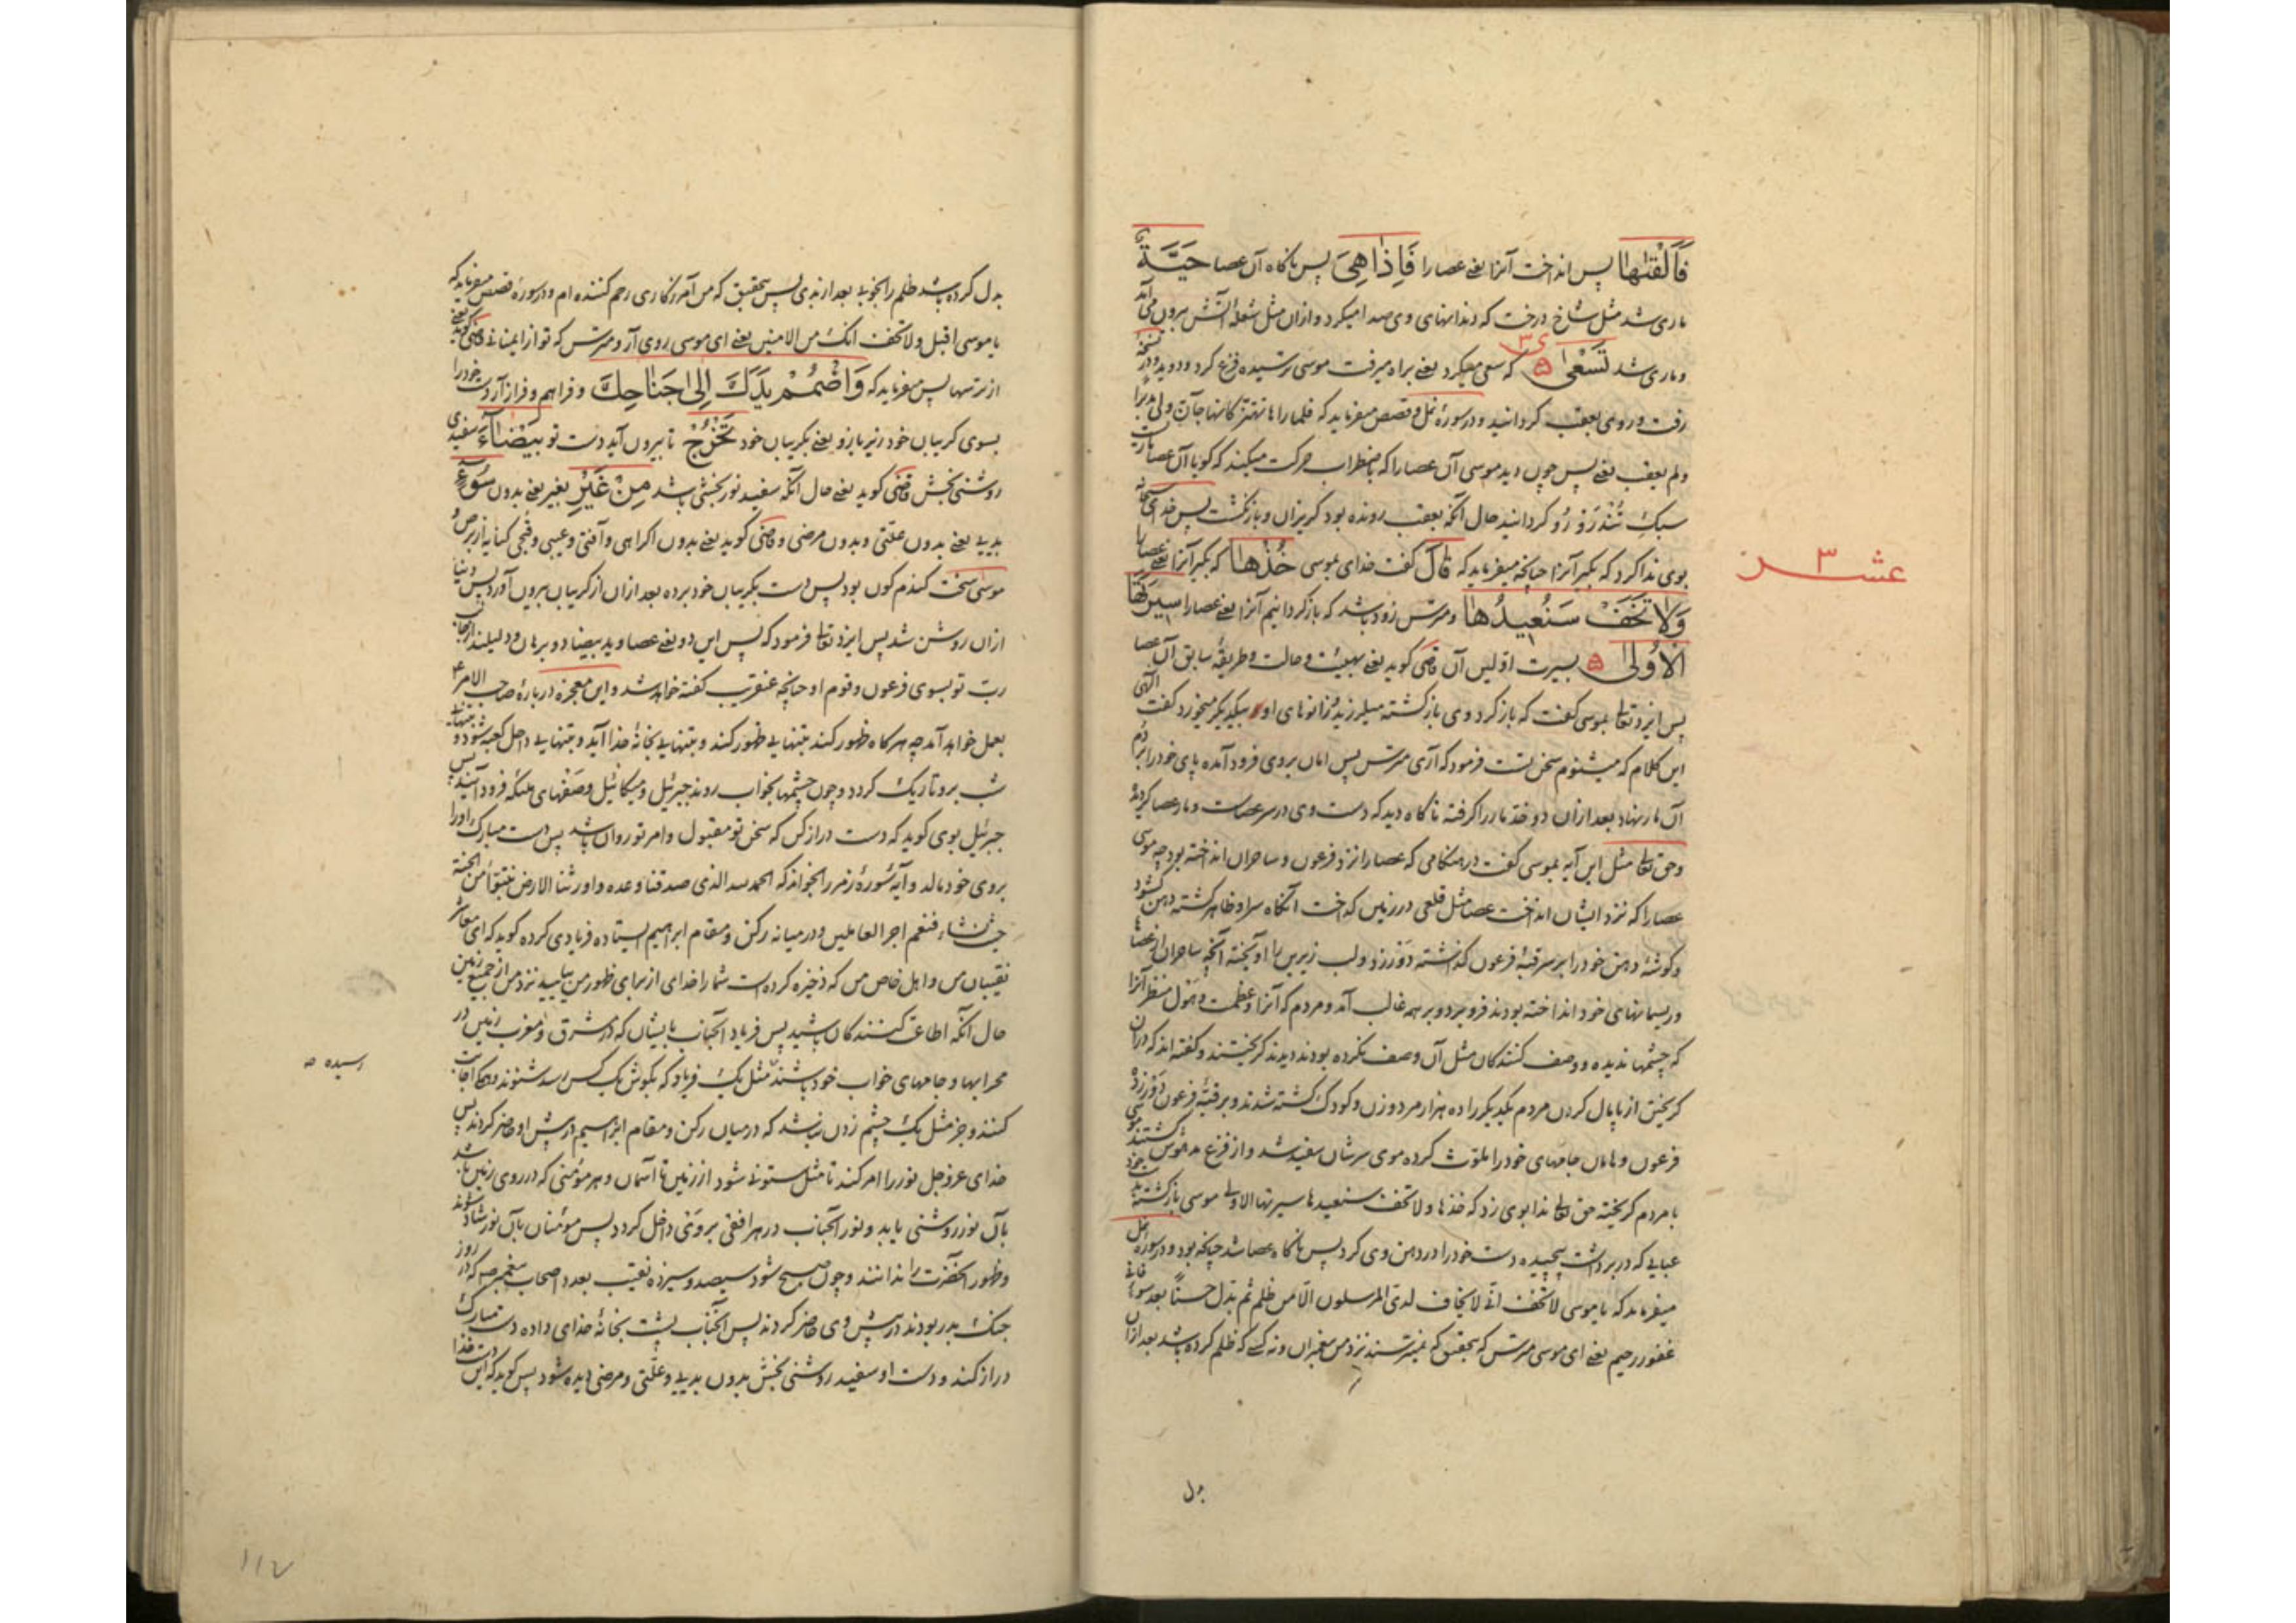 فَاَلْقٰىهٰا پس انداخت آنرا یعنے عصا را فَاِذٰا هِیَ پس ناگاه آن عصا حَیَّةٌ
ماری شد مثل شاخ درخت که دندانهای وی صدا میکرد و ازان مثل شعلهٔ آتش بیرون می آمد
و ماری شد تَسْعٰی که سعی میکرد یعنے براه میرفت موسی ترسیده فزع کرد و دوید و در
رفت و روی بعقب کردانید و در سورهٔ نمل و قصص میفرماید که فلما راها تهتز کانها جان ولی مدبرا
ولم یعقب یعنے پس چون دید موسی آن عصا را که باضطراب حرکت میکند که گویا آن عصا ماریست
سبک تُنْدرَوْ رُو کردانید حال آنکه بعقب رونده بود گریزان و بازنگشت پس خدای
بوی ندا کرد که بگیر آنرا چنانچه میفرماید که قٰالَ گفت خدای بموسی خُذْهٰا که بگیر آنرا یعنے عصا را
وَلٰا تَخَفْ سَنُعِیدُهٰا و مترس زود باشد که بازگردانیم آنرا یعنے عصا را سِیرَتَهَا
الْاُولٰی بسیرت اوّلین آن قاضی گوید یعنے بهیئت و حالت و طریقهٔ سابق آن عصا
پس ایزد تعالی بموسی گفت که بازگرد وی بازگشته میلرزید و زانوهای او بیکدیگر میخورد گفت الهی
این کلام که میشنوم سخن تست فرمود که آری مترس پس امان بروی فرود آمده پای خود را بر دم
آن مار نهاد بعد ازان دو فخذ مار را گرفته ناگاه دید که دست وی در سر عصاست و مار عصا گردیده
و حق تعالی مثل این آیه بموسی گفت در هنگامی که عصا را نزد فرعون و ساحران انداخته بود چه موسی
عصا را که نزد ایشان انداخت عصا مثل قلعی در زمین گداخت آنگاه سر او ظاهر گشته دهن گشود
و گوشهٔ دهن خود را بر سر قبهٔ فرعون گذاشته دَوْر زد و لب زیرین را آویخته آنچه ساحران از عصاها
و ریسمانهای خود انداخته بودند فرو برد و بر همه غالب آمد و مردم که آنرا و عظمت و هول منظر آنرا
که چشمها ندیده و وصف کنندگان مثل آن وصف نکرده بودند دیدند گریختند و گفته اند که دران
گریختن از پایمال کردن مردم یکدیگر را ده هزار مرد و زن و کودک کشته شدند و بر قبهٔ فرعون دَوْر زد
فرعون و هامان جامهای خود را ملوّث کرده موی سرشان سفید شد و از فزع مدهوش گشتند موسی
با مردم گریخته حق تعالی ندا بوی زد که خذها و لا تخف سنعیدها سیرتها الاولی موسی بازگشته
عبایی که در بر داشت پیچیده دست خود را در دهن وی کرد پس ناگاه عصا شد چنانکه بود و در سورهٔ نمل
میفرماید که یا موسی لا تخف انی لا یخاف لدی المرسلون الا من ظلم ثم بدل حسنا بعد سوء فانی
غفور رحیم یعنے ای موسی مترس که بتحقیق که نمیترسند نزد من پیغمبران و نه کسے که ظلم کرده باشد بعد ازان
بدل
عشـ ٣ ـر
بدل کرده باشد ظلم را بخوبی بعد از بدی پس بتحقیق که من آمرزگاری رحم کننده ام و در سورهٔ قصص میفرماید که
یا موسی اقبل ولا تخف انک من الامنین یعنے ای موسی روی آر و مترس که تو از ایمنانی قاضی گوید یعنے
از ترسها پس میفرماید که وَاضْمُمْ یَدَکَ اِلٰی جَنٰاحِکَ و فراهم و فراز آر دست خود را
بسوی گریبان خود زیر بازو یعنے بگریبان خود تَخْرُجْ تا بیرون آید دست تو بَیْضٰاءَ سفیدی
روشنی بخش قاضی گوید یعنے حال آنکه سفید نوربخشی باشد مِنْ غَیْرِ بغیر یعنے بدون سُوءٍ
بدیے یعنے بدون علّتی و بدون مرضی و قاضی گوید یعنے بدون اکراهی و آفتی و عیبی و قبحی کنایه از برص و
موسی سخت گندم گون بود پس دست بگریبان خود برده بعد ازان از گریبان بیرون آورد پس دنیا
ازان روشن شد پس ایزد تعالی فرمود که پس این دو یعنے عصا و ید بیضا دو برهان و دلیلند از جانب
ربّ تو بسوی فرعون و قوم او چنانچه عنقریب گفته خواهد شد و این معجزه دربارهٔ صاحب الامر ع
بعمل خواهد آمد چه هرگاه ظهور کند بتنهایی ظهور کند و بتنهایی بخانهٔ خدا آید و بتنهایی داخل کعبه شود و بتنهایی
شب برو تاریک گردد و چون چشمها بخواب روند جبرئیل و میکائیل و صفهای ملئکه فرود آیند پس
جبرئیل بوی گوید که دست دراز کن که سخن تو مقبول و امر تو روان باشد پس دست مبارک او را
بروی خود مالد و آیهٔ سورهٔ زمر را بخواند که الحمد لله الذی صدقنا وعده و اورثنا الارض نتبوّأ من الجنة
حیث نشاء فنعم اجر العاملین و در میانه رکن و مقام ابراهیم ایستاده فریادی کرده گوید که ای معاشر
نقیبان من و اهل خاص من که ذخیره کرده است شما را خدای از برای ظهور من بیایید نزد من از جمیع زمین
حال آنکه اطاعت کنندگان باشید پس فریاد آنجناب بایشان که در مشرق و مغرب زمین در
محرابها و جامهای خواب خود باشند مثل یک فریاد که بگوش یک کس رسد شنوند و همه اجابت
کنند و جز مثل یک چشم زدن نباشد که در میان رکن و مقام ابراهیم در پیش او حاضر گردند پس
خدای عزوجل نور را امر کند تا مثل ستونی شود از زمین تا آسمان و هر مؤمنی که در روی زمین باشد
بآن نور روشنی یابد و نور آنجناب در هر افقی برو داخل گردد پس مؤمنان بآن نور شاد شوند
و ظهور آنحضرت را ندانند و چون صبح شود سیصد و سیزده نقیب بعدد اصحاب پیغمبر ص که در روز
جنک بدر بودند در پیش وی حاضر گردند پس آنجناب پشت بخانهٔ خدای داده دست مبارک
دراز کند و دست او سفید روشنی بخش بدون بدیے و علّتی و مرضی دیده شود پس گوید که این دست خدا
رسیده
۱۱۲